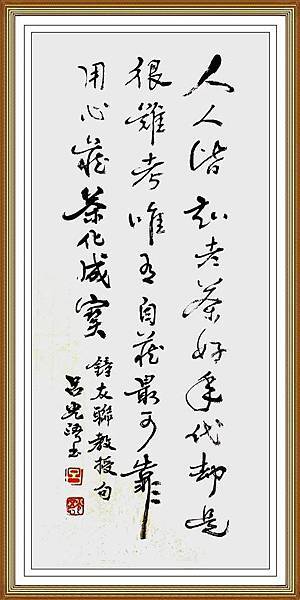 人人皆知老茶好年代却是
很難考唯有自藏最可靠
用心藏茶化成寶
鐘友聯教授句
呂光書